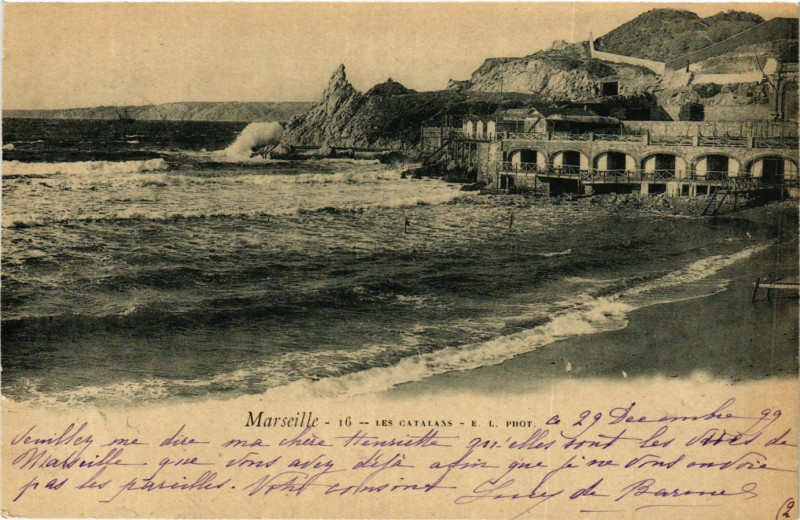 Marseille - 16 -- LES CATALANS - E. L. PHOT.
ce 29 Decembre 99
Veuillez me dire ma chère Henriette qu'elles sont les vues de
Marseille que vous avez déjà afin que je ne vous envoie
pas les pareilles. Votre cousine de
(2